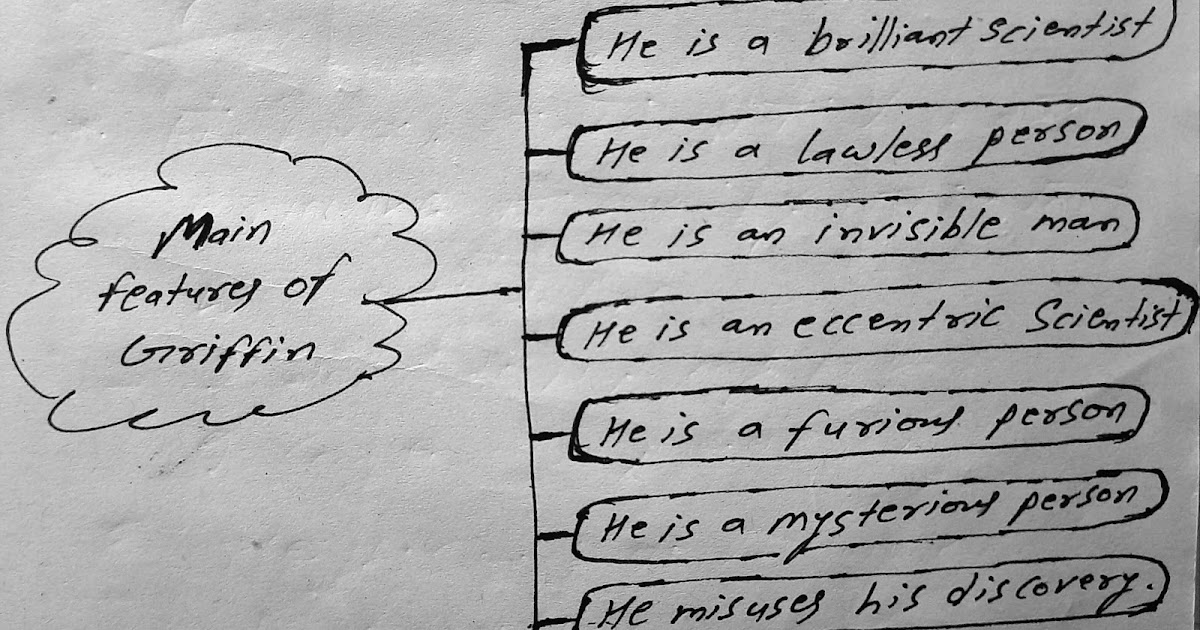 Main
features of
Griffin
He is a brilliant scientist
He is a lawless person
He is an invisible man
He is an eccentric Scientist
He is a furious person
He is a mysterious person
He misuses his discovery.